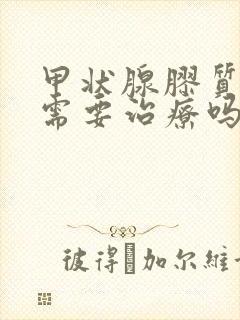 甲状腺膠質
需要治療吗
彼得·加尔維